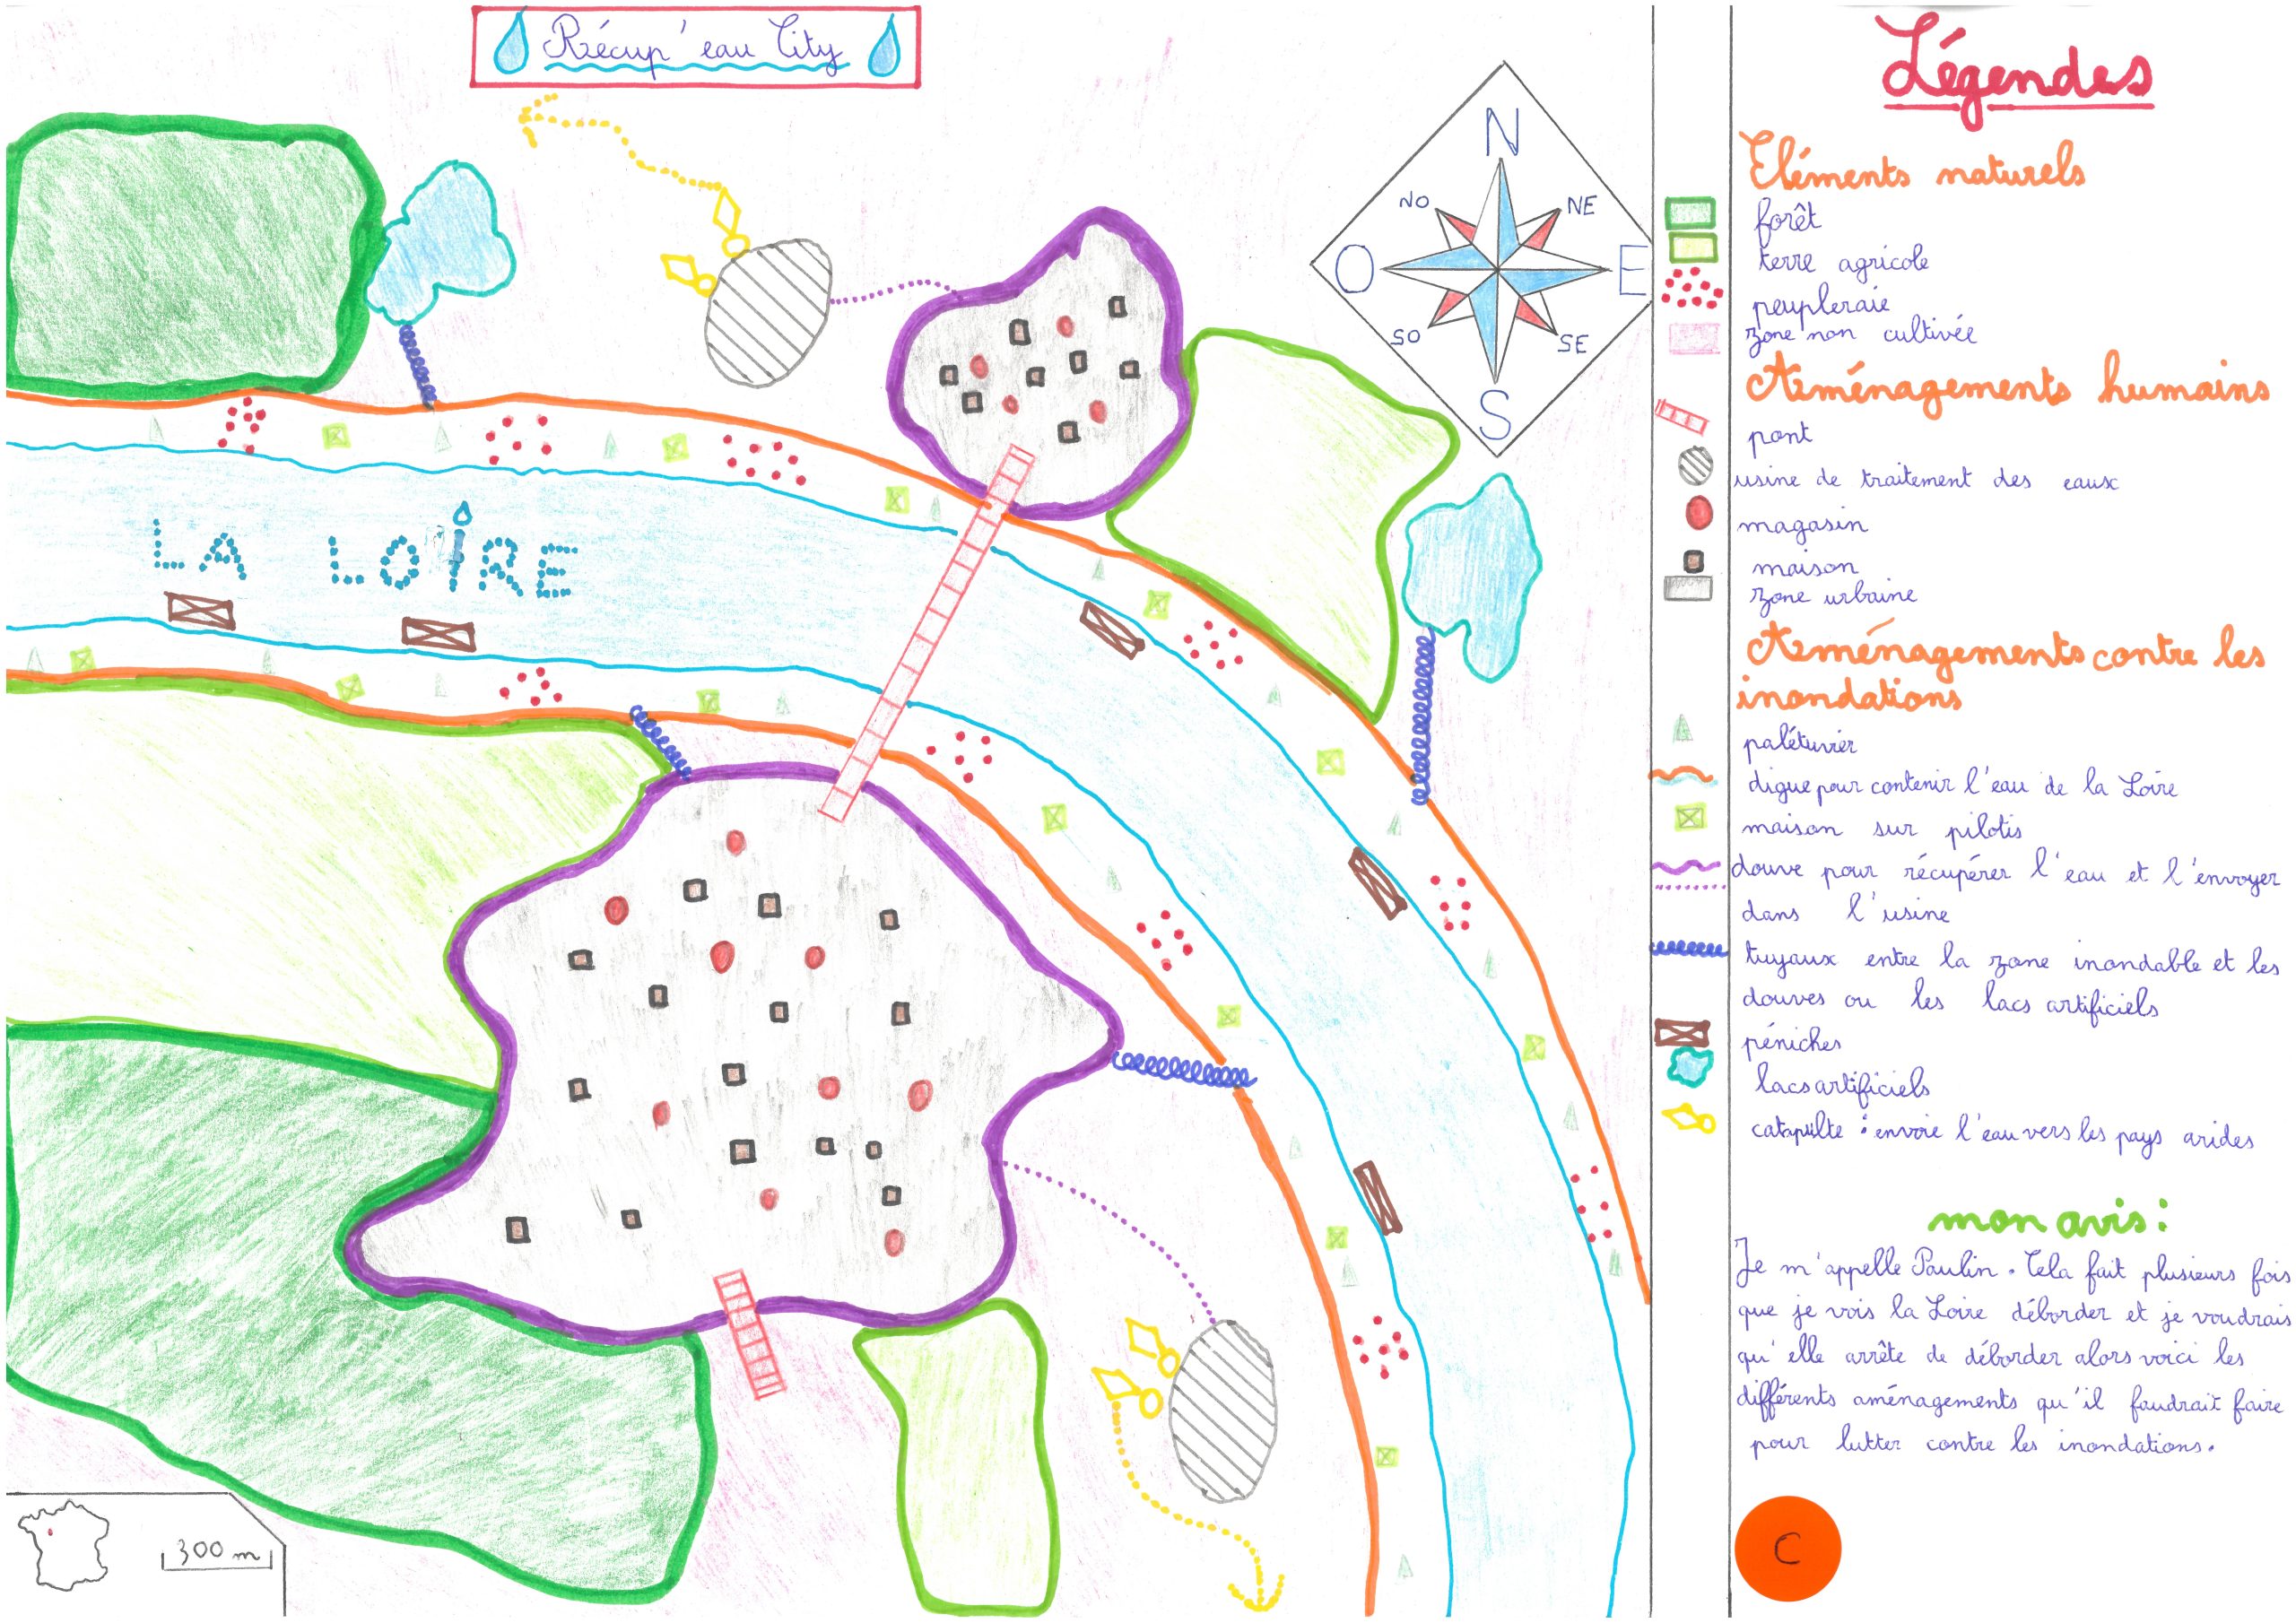 Récup'eau City
N
NO
NE
O
E
SO
SE
S
LA LOIRE
300 m
Légendes
Eléments naturels
forêt
terre agricole
peupleraie
zone non cultivée
Aménagements humains
pont
usine de traitement des eaux
magasin
maison
zone urbaine
Aménagements contre les
inondations
palétuvier
digue pour contenir l'eau de la Loire
maison sur pilotis
douve pour récupérer l'eau et l'envoyer
dans l'usine
tuyaux entre la zone inondable et les
douves ou les lacs artificiels
péniches
lacs artificiels
catapulte : envoie l'eau vers les pays arides
mon avis :
Je m'appelle Paulin. Cela fait plusieurs fois
que je vois la Loire déborder et je voudrais
qu'elle arrête de déborder alors voici les
différents aménagements qu'il faudrait faire
pour lutter contre les inondations.
C